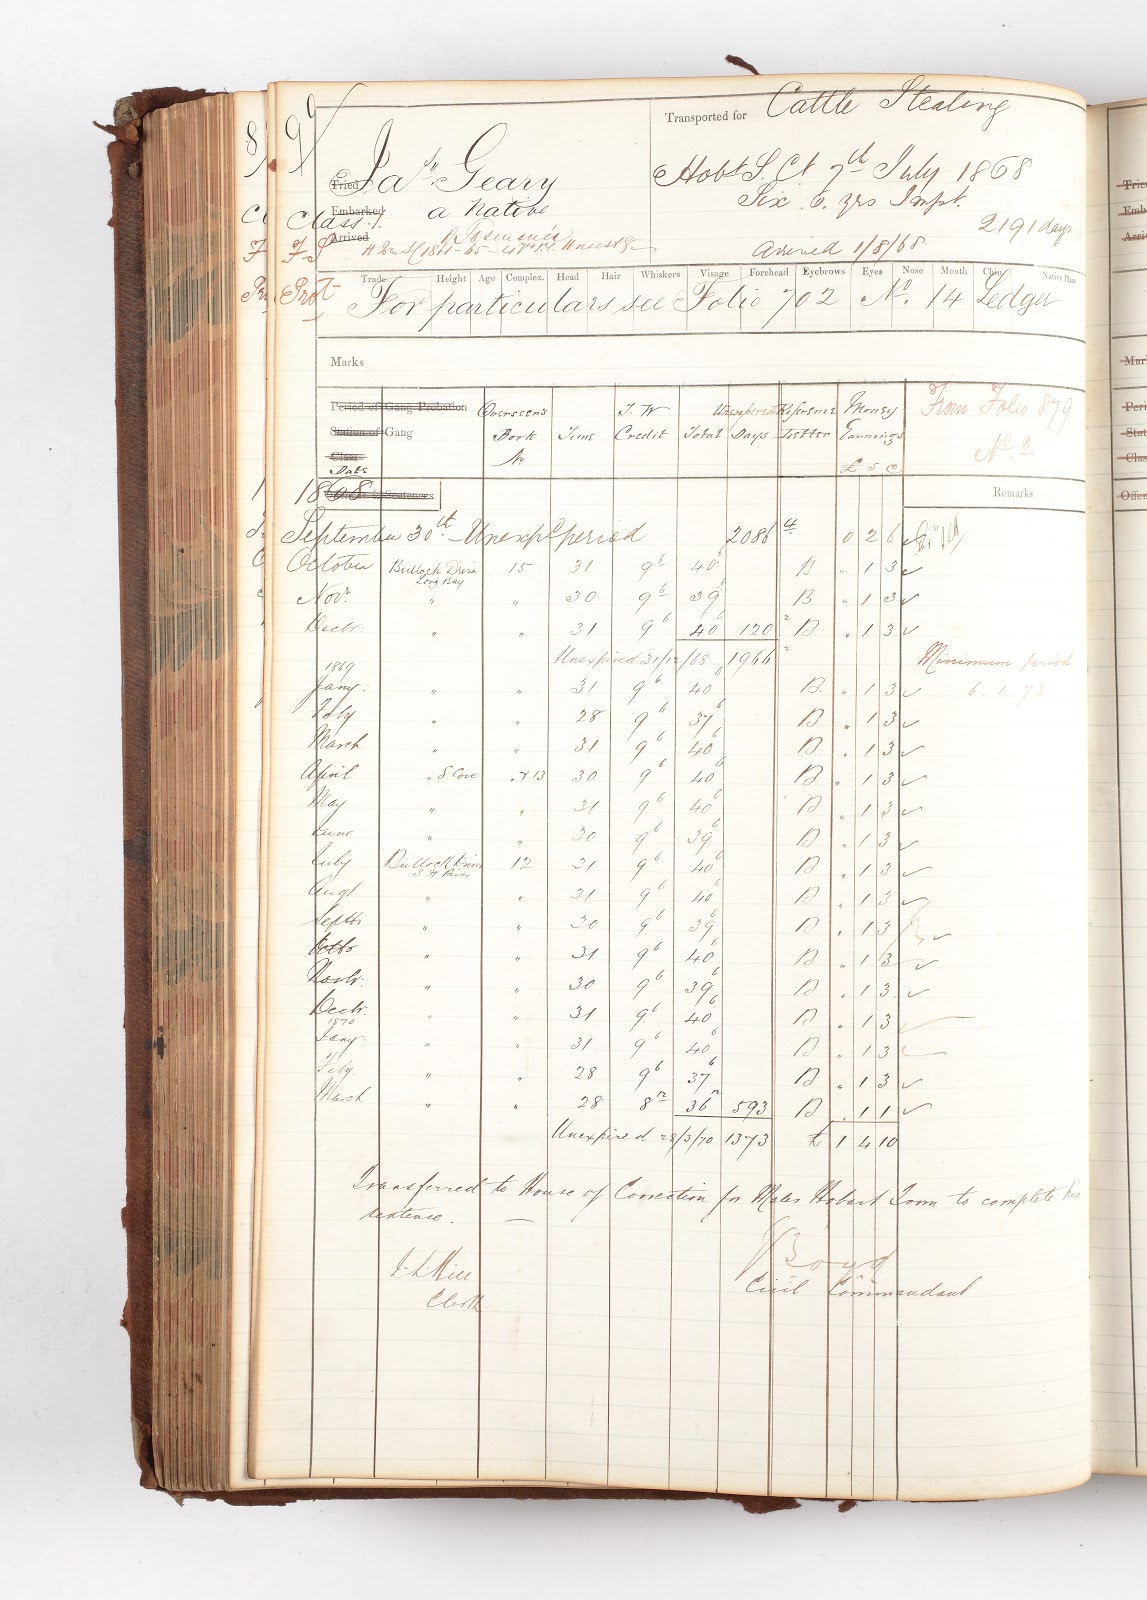 8 9
Transported for Cattle Stealing
Tried Jas. Geary
Hobt S. Ct 7th July 1868
Embarked a Native
Six . 6. yrs Impt.
Class 1.
Arrived of Tasmania
2191 days
F. S
Arrived 1/8/68
Prot
Trade Height Age Complex. Head Hair Whiskers Visage Forehead Eyebrows Eyes Nose Mouth Chin Native Place
For particulars see Folio 702 No. 14 Ledger
Marks
Period of Gang Probation Overseers T. W Unexpired Reference Money From Folio 879
Station of Gang Book Time Credit Total Days Letter Earnings No. 2
Class No
Date £ S C
1868 Offences & Sentences Remarks
September 30th Unexpd period 2086 4 0 2 6
October Bullock Driver 15 31 9 6 40 6 B " 1 3
Long Bay
Novr. " " 30 9 6 39 6 B " 1 3
Decbr. " " 31 9 6 40 6 120 2 B " 1 3
Unexpired 31/12/68 1966 2 Minimum period
1869
Jany. " " 31 9 6 40 6 B. " 1 3 6.1.73
Feby " " 28 9 6 37 6 B " 1 3
March " " 31 9 6 40 6 B " 1 3
April " S Cove " & 13 30 9 6 40 6 B " 1 3
May " " 31 9 6 40 6 B " 1 3
June " " 30 9 6 39 6 B " 1 3
July Bullock Driver 12 31 9 6 40 6 B " 1 3
Augt " " 31 9 6 40 6 B " 1 3
Septbr " " 30 9 6 39 6 B " 1 3
Octbr " " 31 9 6 40 6 B " 1 3
Novbr. " " 30 9 6 39 6 B " 1 3
Decbr. " " 31 9 6 40 6 B " 1 3
1870
Jany. " " 31 9 6 40 6 B " 1 3
Feby. " " 28 9 6 37 6 B " 1 3
March " " 28 8 36 593 B " 1 1
Unexpired 28/3/70 1373 £ 1 4 10
Transferred to House of Correction for Males Hobart Town to complete his
sentence.
J Boyd
Civil Commandant
Clerk
Tried
Emb
Arri
Mar
Peri
Stat
Clas
Offen